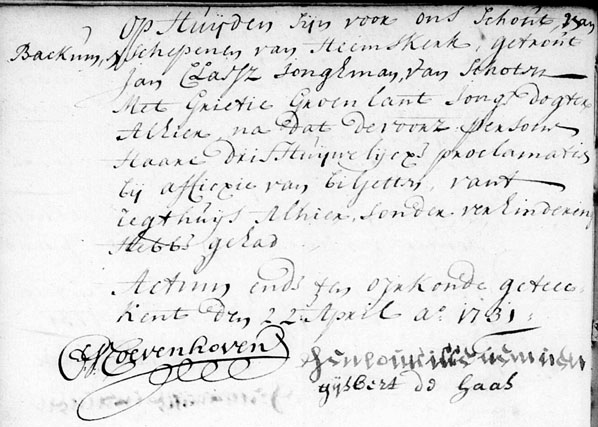 Op Huijden sijn voor ons Schout, van
Backum, en Schepenen van Heemskerk, getrout
Jan Claasz Jongkman, van Schoten
Met Grietie Groenlant Jongs dogter
Alhier, na dat de voorn: persoon
Haare drij Huijwelijcxs proclamatien
bij affixie van biljetten, vant
regthuijs Alhier, sonder verhindering
Hebbn gehad
Actum ende ten oijrkonde geteec-
kent den 22 April ao: 1731:
Coevenhoven
gijsbert de haas